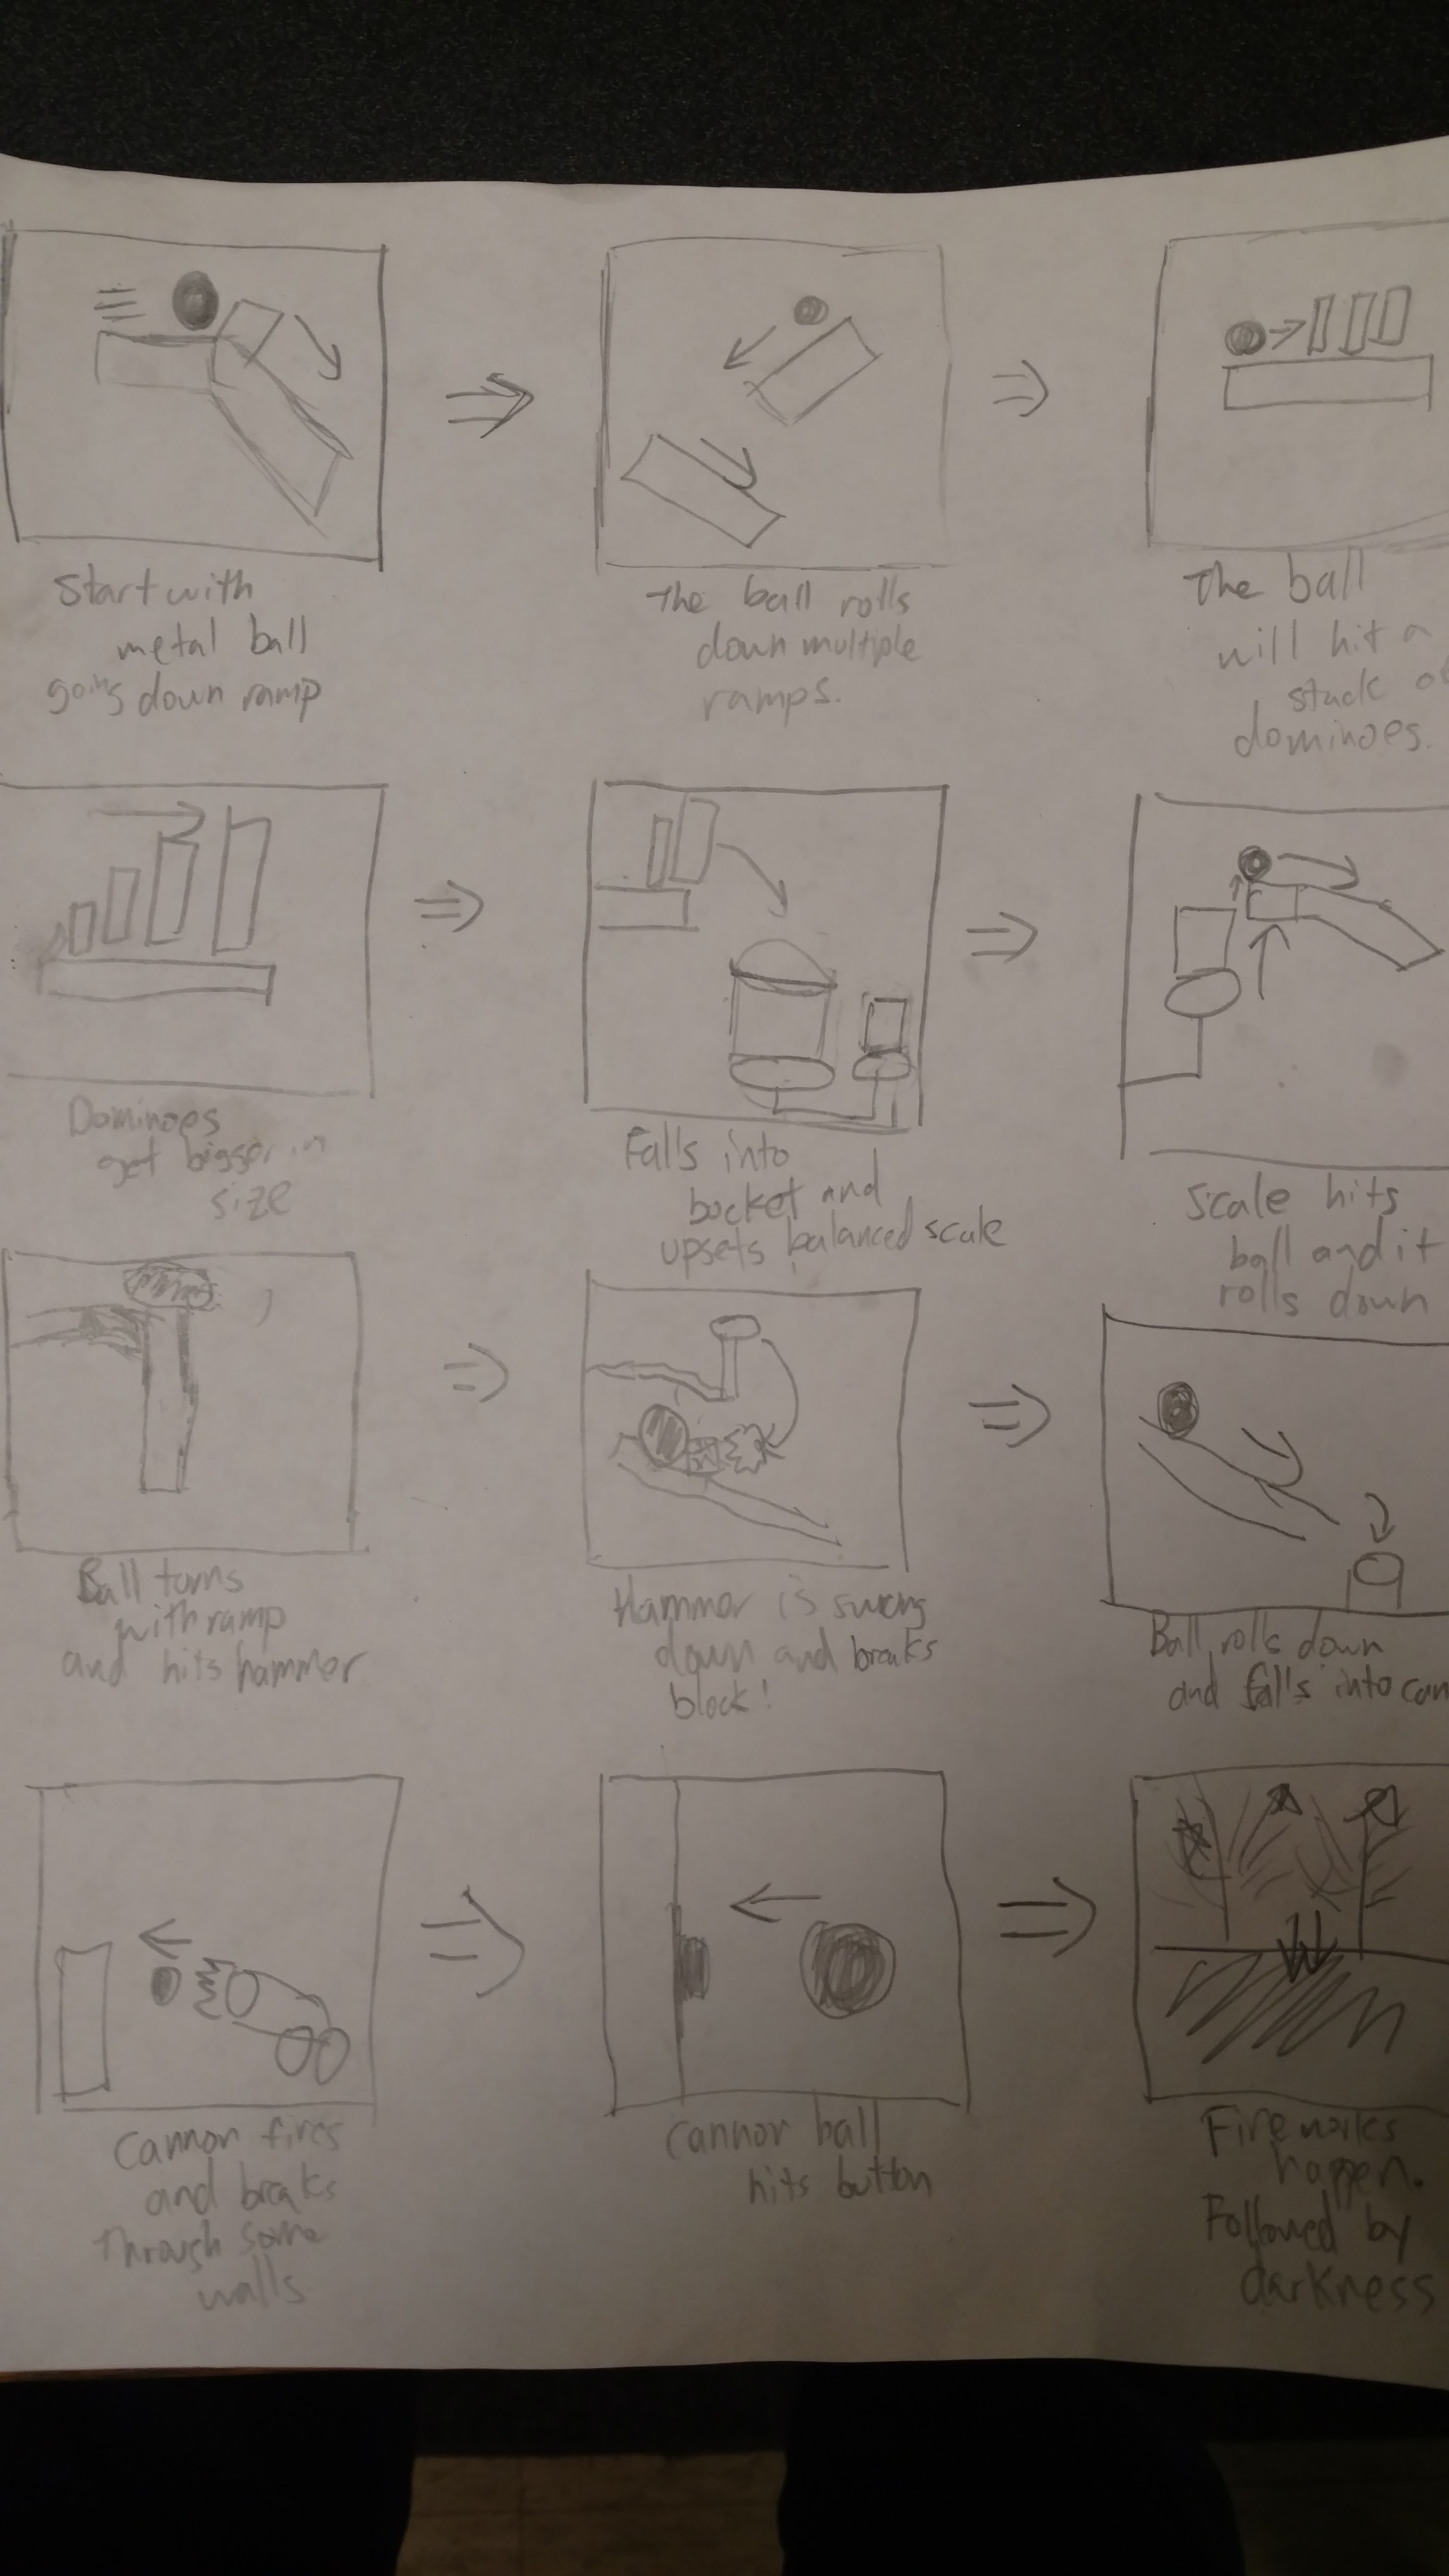 Start with
metal ball
going down ramp
The ball rolls
down multiple
ramps.
The ball
will hit a
stack of
dominoes.
Dominoes
get bigger in
size
Falls into
bocket and
upsets balanced scale
Scale hits
ball and it
rolls down
Ball turns
with ramp
and hits hammer
Hammer is swung
down and breaks
block!
Ball rolls down
and falls into can
Cannon fires
and breaks
through some
walls
Cannon ball
hits button
Fireworks
happen.
Followed by
darkness